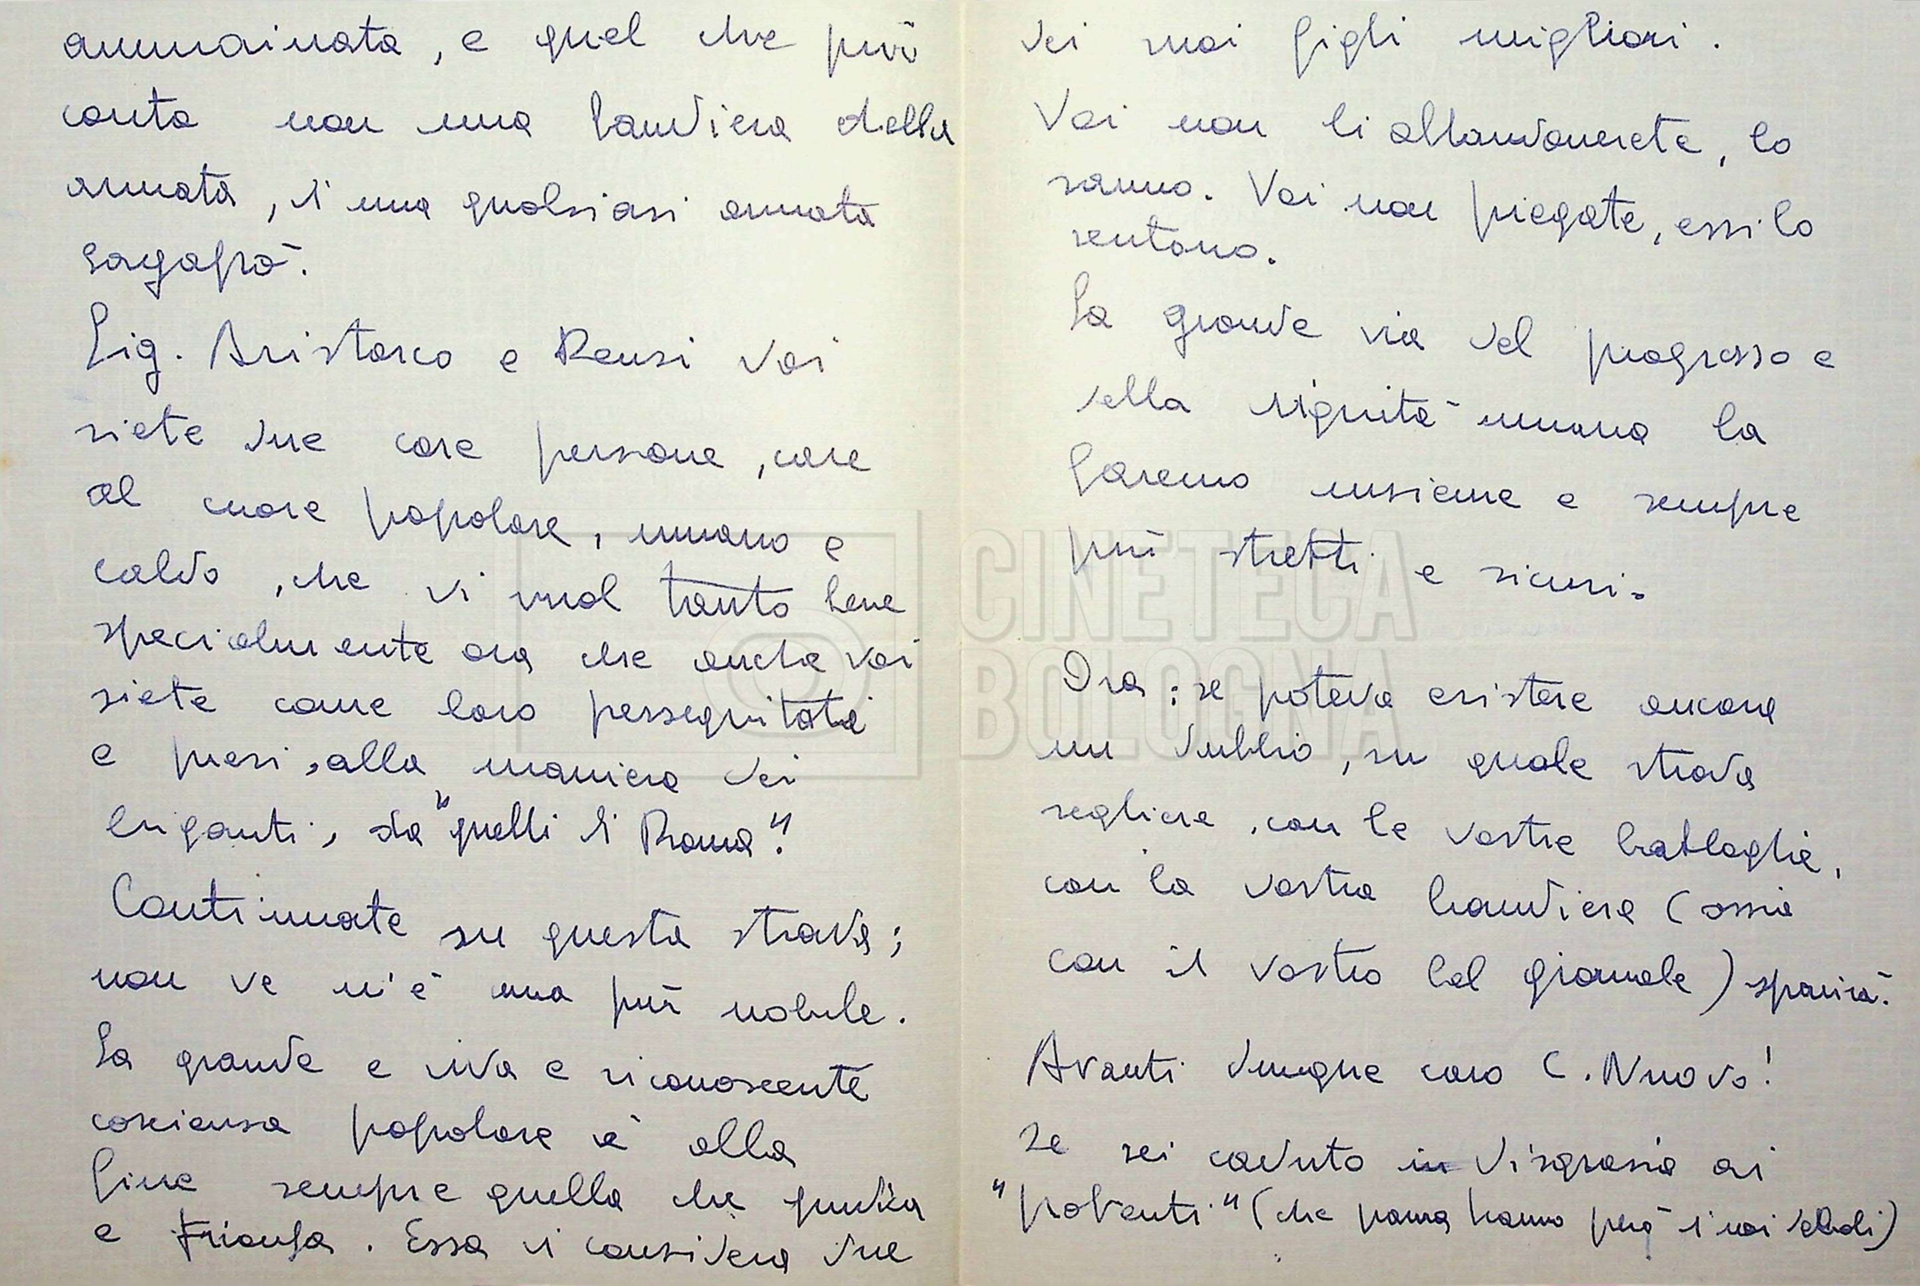 ammainata, e quel che più
conta non una bandiera della
armata, di una qualsiasi armata
sagapò.
Sig. Aristarco e Renzi voi
siete due care persone, care
al cuore popolare, umano e
caldo, che vi vuol tanto bene
specialmente ora che anche voi
siete come loro perseguitati
e presi, alla maniera dei
briganti, da "quelli di Roma".
Continuate su questa strada;
non ve n'è una più nobile.
La grande e viva e riconoscente
coscienza popolare è alla
fine sempre quella che giudica
e trionfa. Essa vi considera due
dei suoi figli migliori.
Voi non li abbandonerete, lo
sanno. Voi non piegate, essi lo
sentono.
La grande via del progresso e
della dignità umana la
faremo insieme e sempre
più stretti e sicuri.
Ora: se poteva esistere ancora
un dubbio, su quale strada
scegliere, con le vostre battaglie,
con la vostra bandiera (ossia
con il vostro bel giornale) sparirà.
Avanti dunque caro C. Nuovo!
Se sei caduto in disgrazia ai
"potenti" (che paura hanno però di noi deboli)
CINETECA
BOLOGNA